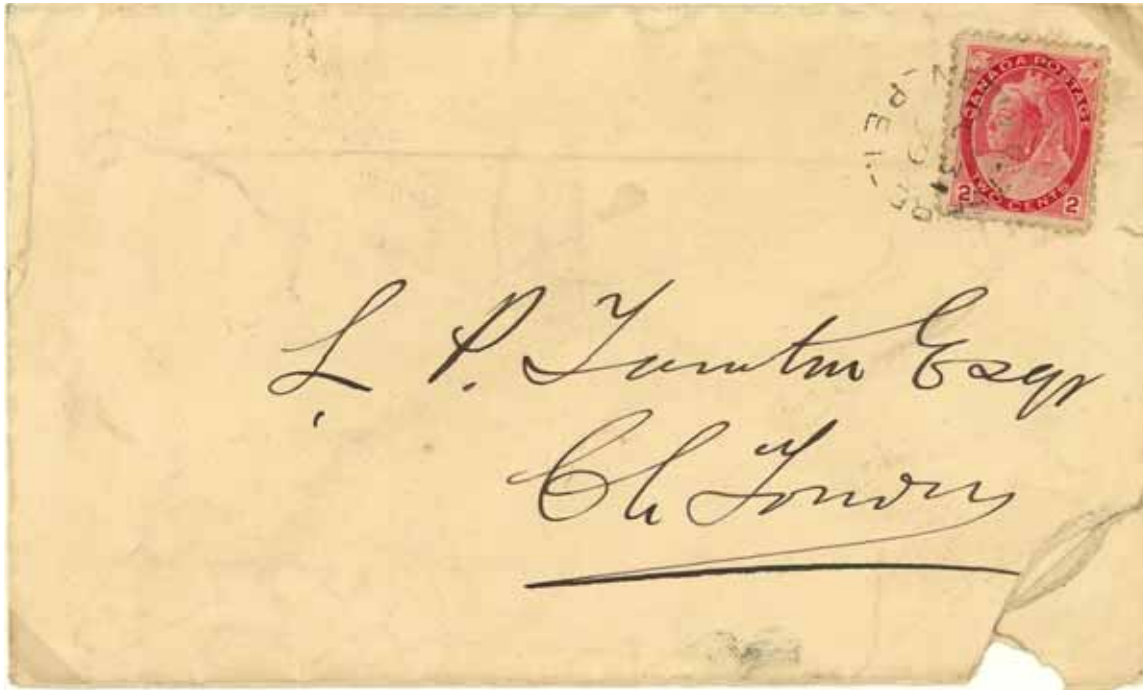 CANADA POSTAGE
TWO CENTS
2 2
P.E.I.
L. P. Tanton Esqr
Ch Town